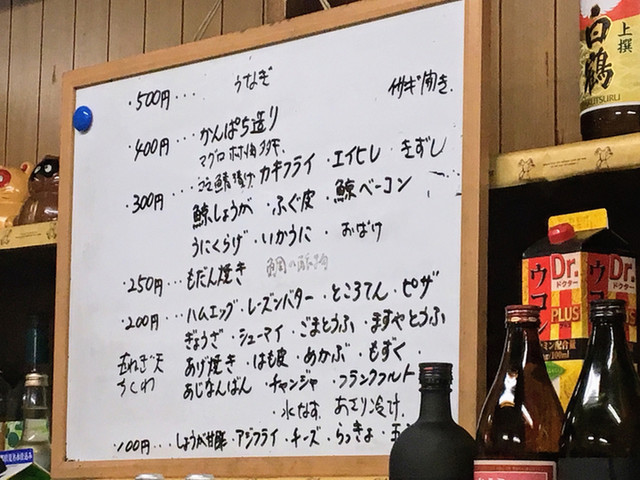 ・500円・・・ うなぎ
イサギ 開き.
・400円・・・ かんぱち造り
マグロ
・300円・・・ カキフライ・エイヒレ・きずし
鯨しょうが・ふぐ皮・鯨ベーコン
うにくらげ・いかうに・おばけ
・250円・・・ もだん焼き
・200円・・・ ハムエッグ・レーズンバター・ところてん・ピザ
ぎょうざ・シューマイ・ごまとうふ・ますやとうふ
玉ねぎ天 あげ焼き・はも皮・あかぶ・もずく・
ちくわ あじなんばん・チャンジャ・フランクフルト
・水なす
・100円・・・ しょうが甘酢・アジフライ・チーズ・らっきょ・玉
上撰
白鶴
Dr.
ドクター
PLUS
ウコン
Dr.
ドクター
PLUS
ウコン